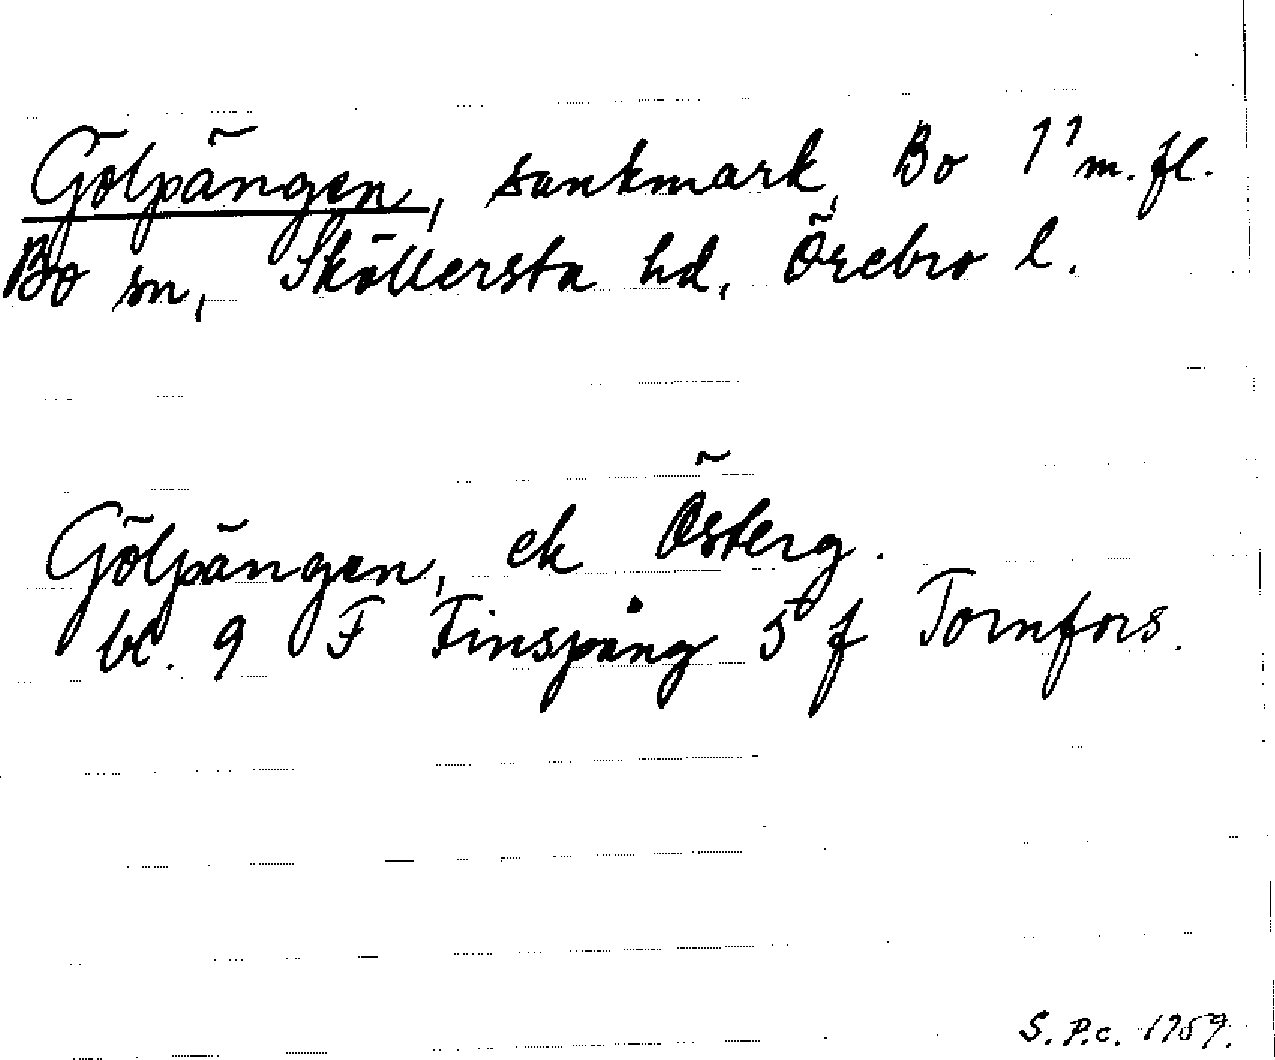 Gölpängen, sankmark, Bo 1⁷ m. fl.
Bo sn, Sköllersta hd, Örebro l.
Gölpängen, ek Österg.
bl. 9 F Finspång 5 f Tornfors.
S. P.c. 1759.